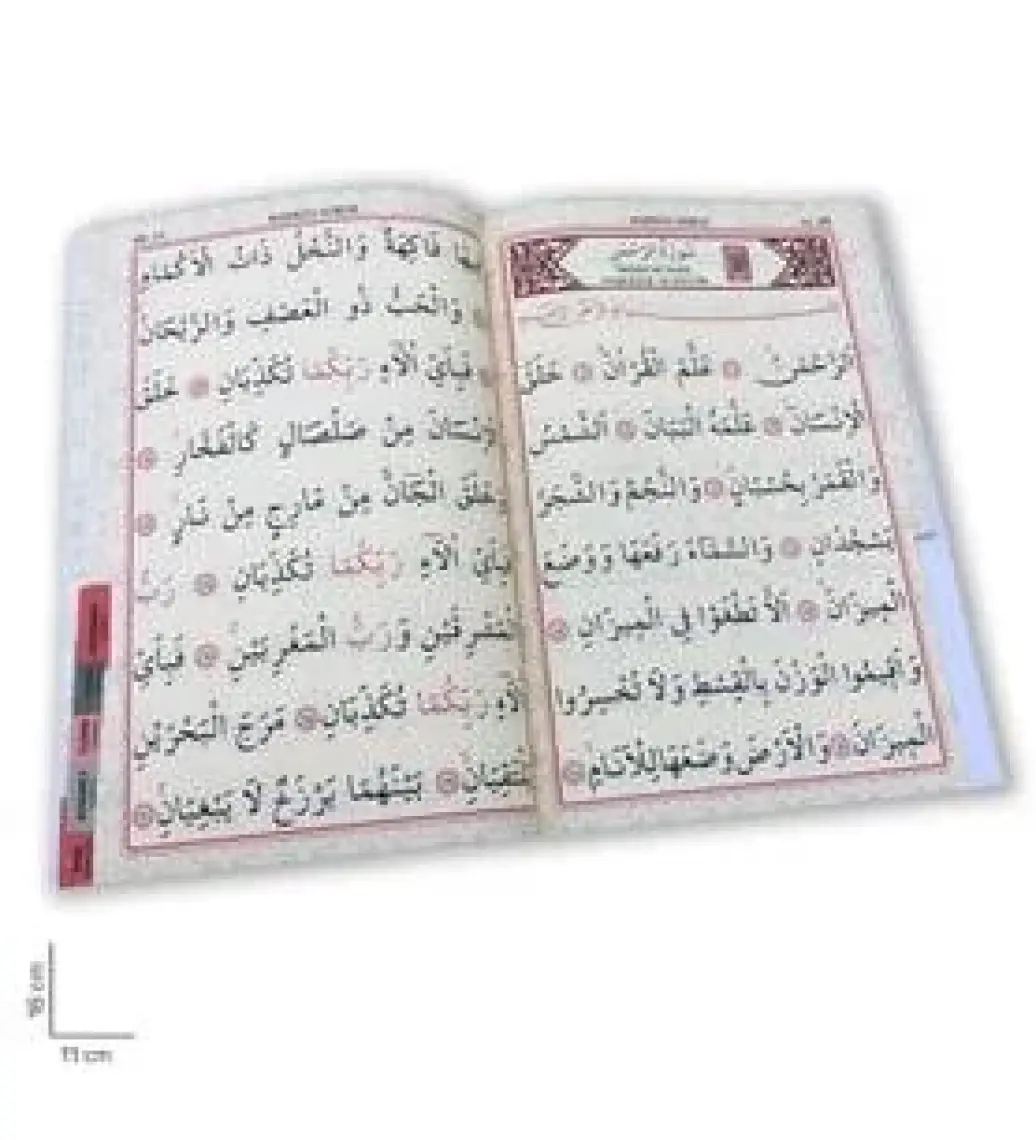 سورة الرحمن
اَلرَّحْمٰنُ ۝ عَلَّمَ الْقُرْاٰنَ ۝ خَلَقَ
الْاِنْسَانَ ۝ عَلَّمَهُ الْبَيَانَ ۝ اَلشَّمْسُ
وَالْقَمَرُ بِحُسْبَانٍ ۝ وَالنَّجْمُ وَالشَّجَرُ
يَسْجُدَانِ ۝ وَالسَّمَٓاءَ رَفَعَهَا وَوَضَعَ
الْمِيزَانَ ۝ اَلَّا تَطْغَوْا فِي الْمِيزَانِ ۝
وَاَقِيمُوا الْوَزْنَ بِالْقِسْطِ وَلَا تُخْسِرُوا
الْمِيزَانَ ۝ وَالْاَرْضَ وَضَعَهَا لِلْاَنَامِ ۝
فَاكِهَةٌ وَالنَّخْلُ ذَاتُ الْاَكْمَامِ
وَالْحَبُّ ذُو الْعَصْفِ وَالرَّيْحَانُ
۝ فَبِاَيِّ اٰلَٓاءِ رَبِّكُمَا تُكَذِّبَانِ ۝ خَلَقَ
مِنْ صَلْصَالٍ كَالْفَخَّارِ ۝
وَخَلَقَ الْجَٓانَّ مِنْ مَارِجٍ مِنْ نَارٍ ۝
فَبِاَيِّ اٰلَٓاءِ رَبِّكُمَا تُكَذِّبَانِ ۝ رَبُّ
الْمَشْرِقَيْنِ وَرَبُّ الْمَغْرِبَيْنِ ۝ فَبِاَيِّ
اٰلَٓاءِ رَبِّكُمَا تُكَذِّبَانِ ۝ مَرَجَ الْبَحْرَيْنِ
يَلْتَقِيَانِ ۝ بَيْنَهُمَا بَرْزَخٌ لَا يَبْغِيَانِ ۝
16 cm
11 cm